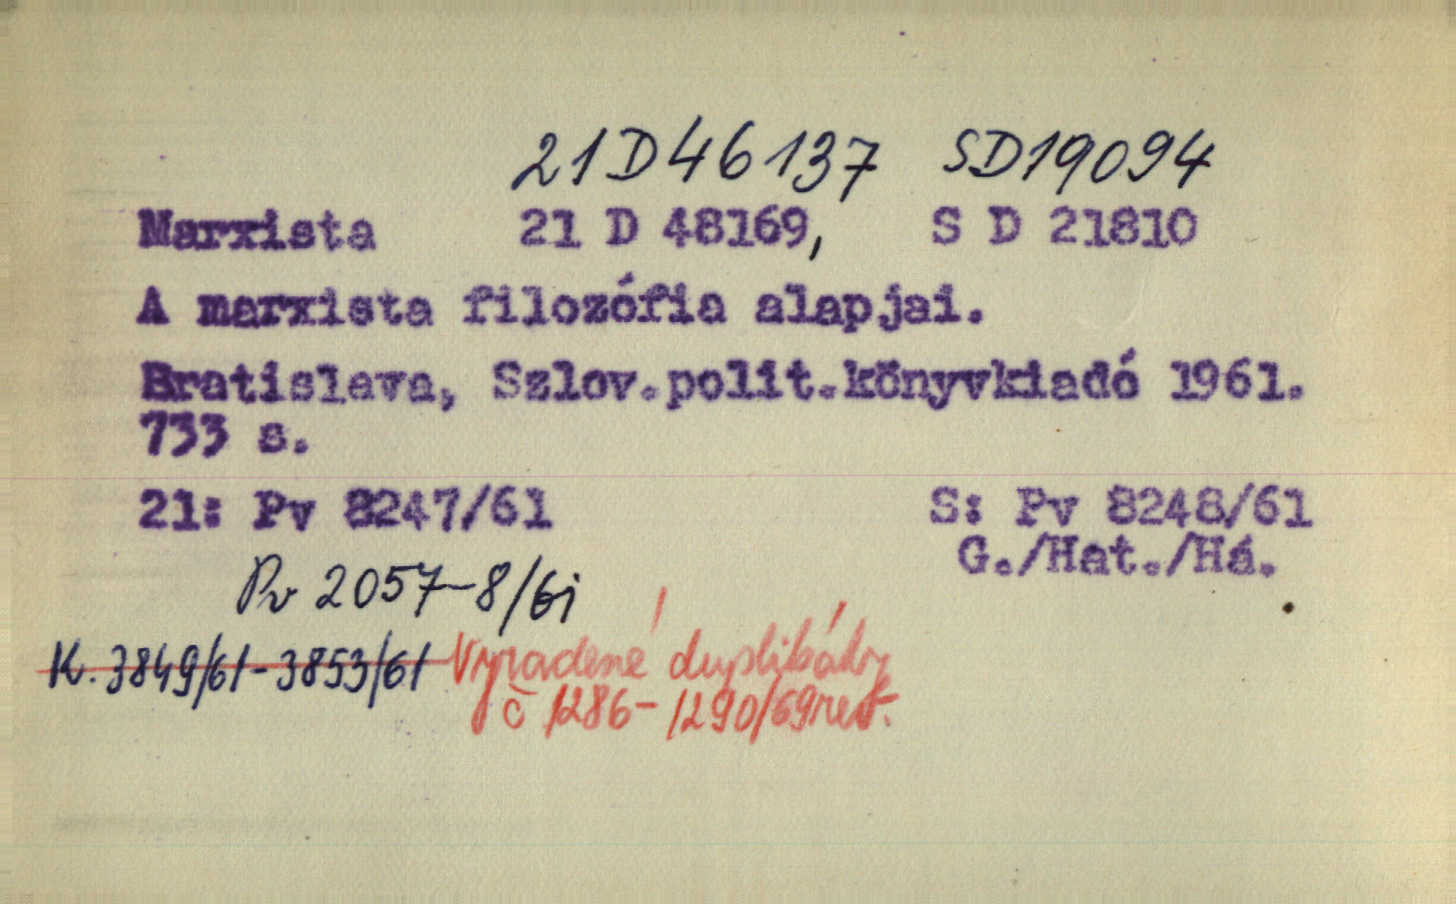 21D46137 SD19094
Marxista 21 D 48169, S D 21810
A marxista filozófia alapjai.
Bratislava, Szlov.polit.könyvkiadó 1961.
733 s.
21: Pv 8247/61 S: Pv 8248/61
G./Hat./Há.
Pv 2057-8/61
K. 3849/61-3853/61 Vyradené duplikáty
č 1286-1290/69 rest.